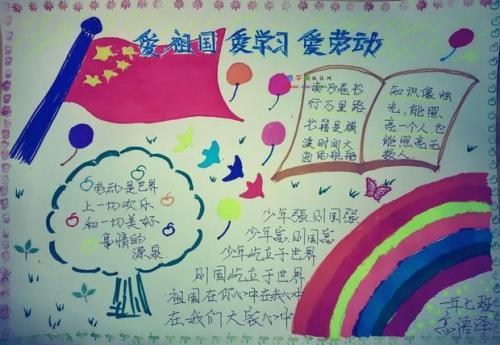 爱祖国 爱学习 爱劳动
读万卷书
行万里路
书籍是横
渡时间大
知识像烛
光,能照
亮一个人,也
能照亮无
数人.
劳动是世界
上一切欢乐
和一切美好
事情的
源泉
少年强则国强
少年富则国富
少年屹立于世界
则国屹立于世界
祖国在你心中在我心中
在我们大家心中
一年七班